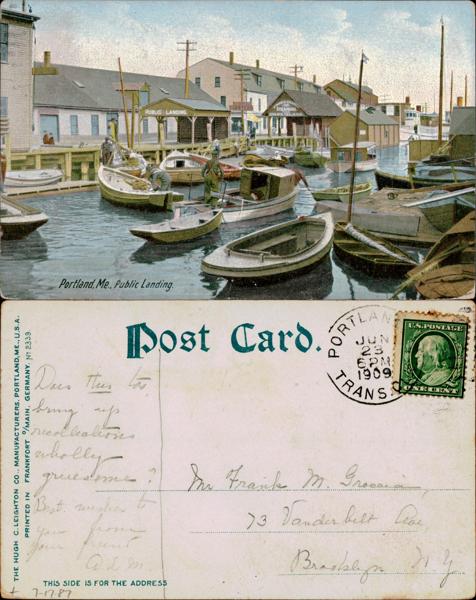 PUBLIC LANDING
Portland, Me. Public Landing.
THE HUGH C. LEIGHTON CO., MANUFACTURERS, PORTLAND, ME., U.S.A.
PRINTED IN FRANKFORT o/MAIN, GERMANY. No 2339
Post Card.
PORTLAN
JUN
23
6 PM
1909
TRANS.
U.S. POSTAGE
ONE CENT
Does this to
bring up
recollections
wholly
gruesome?
Best wishes to
you from
your friend
A.L.M.
Mr Frank M.
73 Vanderbilt Ave,
Brooklyn N Y
THIS SIDE IS FOR THE ADDRESS
7-17-87